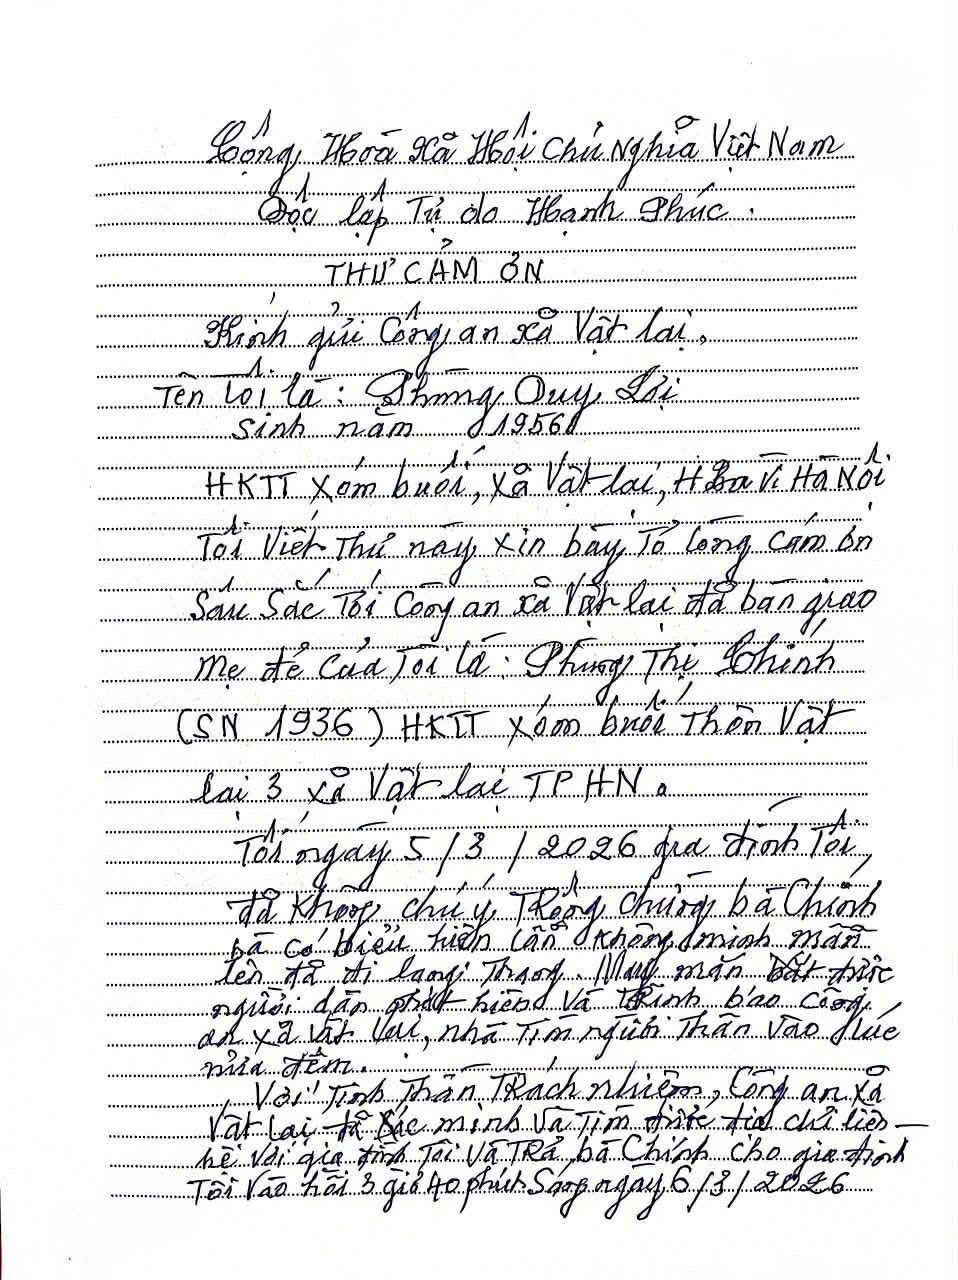 Cộng Hoà Xã Hội Chủ Nghĩa Việt Nam
Độc lập Tự do Hạnh Phúc.
THƯ CẢM ƠN
Kính gửi Công an xã Vật lại.
Tên Tôi là: Phùng Quy Lợi
Sinh năm 1956
HKTT Xóm buổi, Xã Vật lại, H Ba Vì Hà Nội
Tôi Viết Thư này xin bày Tỏ lòng cám ơn
Sâu Sắc Tới Công an xã Vật lại đã bàn giao
Mẹ đẻ Của Tôi là: Phùng Thị Chính
(SN 1936) HKTT Xóm buổi Thôn Vật
lại 3 xã Vật lại TP HN.
Tối ngày 5/3/2026 gia đình Tôi
đã không chú ý Trông chừng bà Chính
bà có biểu hiện lẫn không minh mẫn
lên đã đi lang Thang. May mắn được
người dân phát hiện Và Trình báo công
an xã Vật lại, nhờ Tìm người Thân Vào lúc
nửa đêm.
Với Tinh Thần Trách nhiệm, Công an xã
Vật lại đã Xác minh Và Tìm được địa chỉ liên
hệ Với gia đình Tôi Và Trả bà Chính cho gia đình
Tôi Vào hồi 3 giờ 40 phút Sáng ngày 6/3/2026